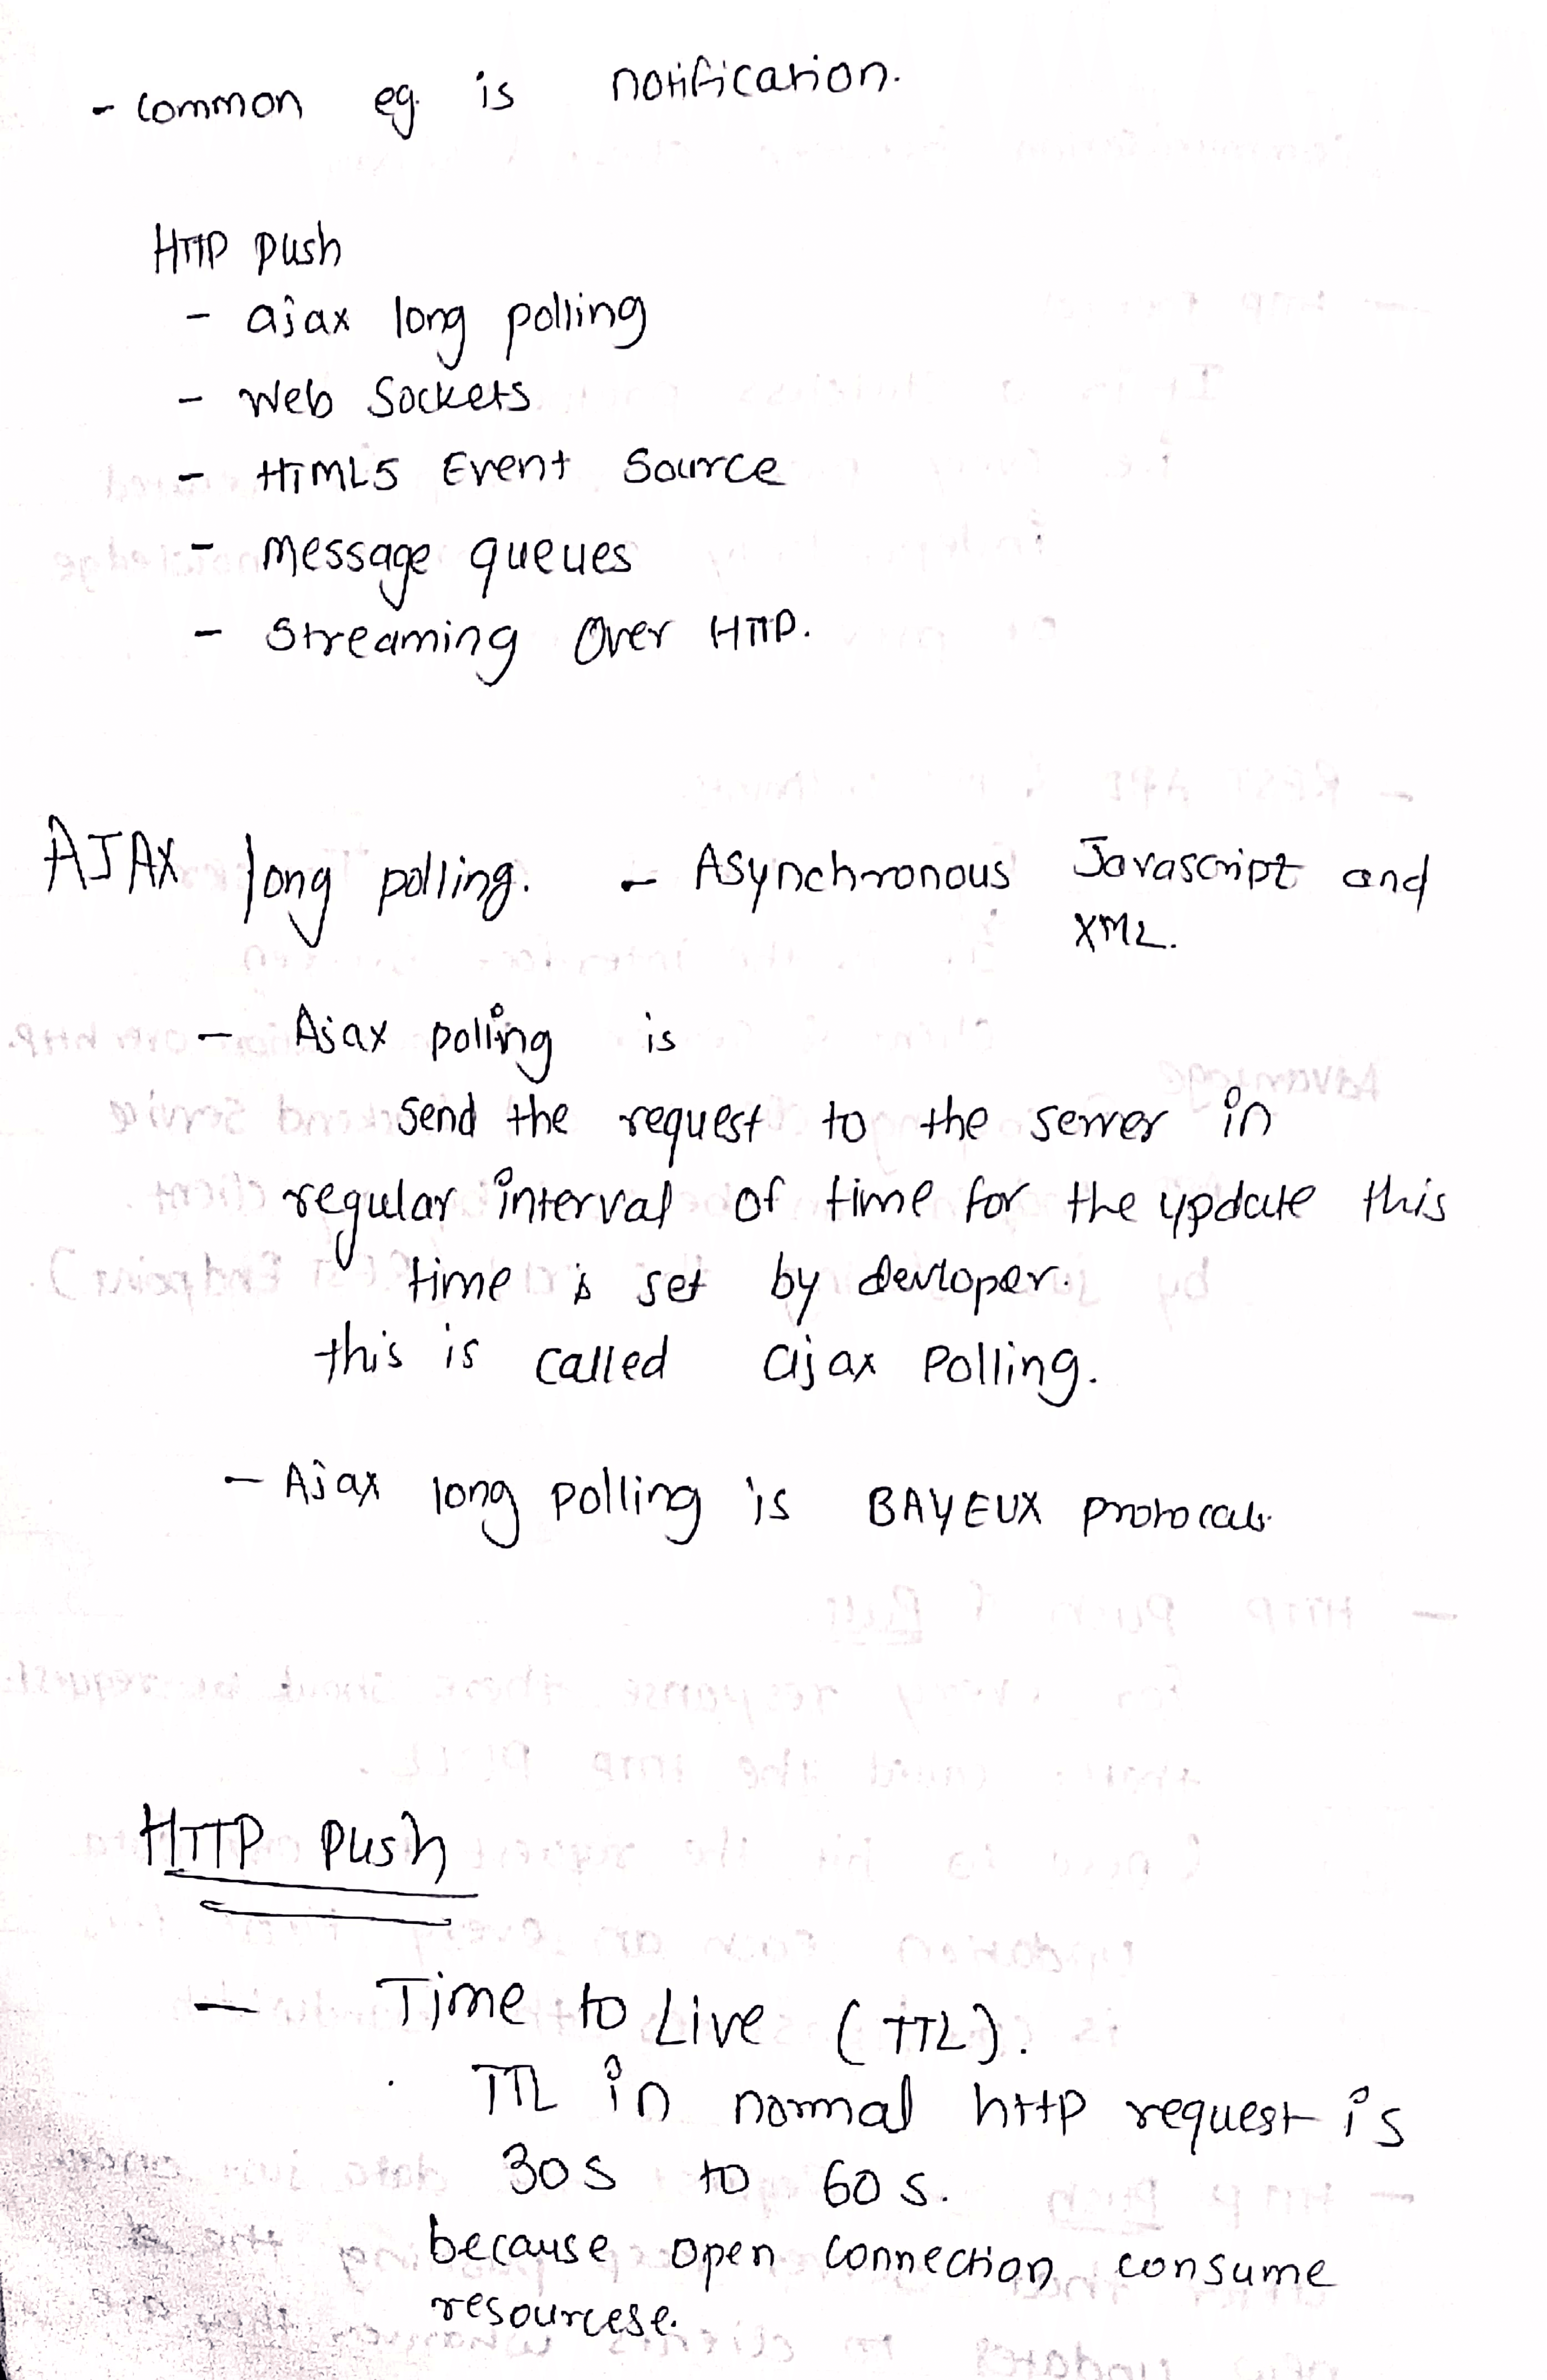 - common eg. is notification.
HTTP push
- ajax long polling
- Web Sockets
- HTML5 Event Source
- Message queues
- Streaming Over HTTP.
AJAX long polling. - Asynchronous Javascript and
XML.
- Ajax polling is
send the request to the server in
regular interval of time for the update this
time is set by devloper.
this is called ajax Polling.
- Ajax long polling is BAYEUX
HTTP push
- Time to Live (TTL).
TTL in normal http request is
30s to 60s.
because open connection consume
resourcese.